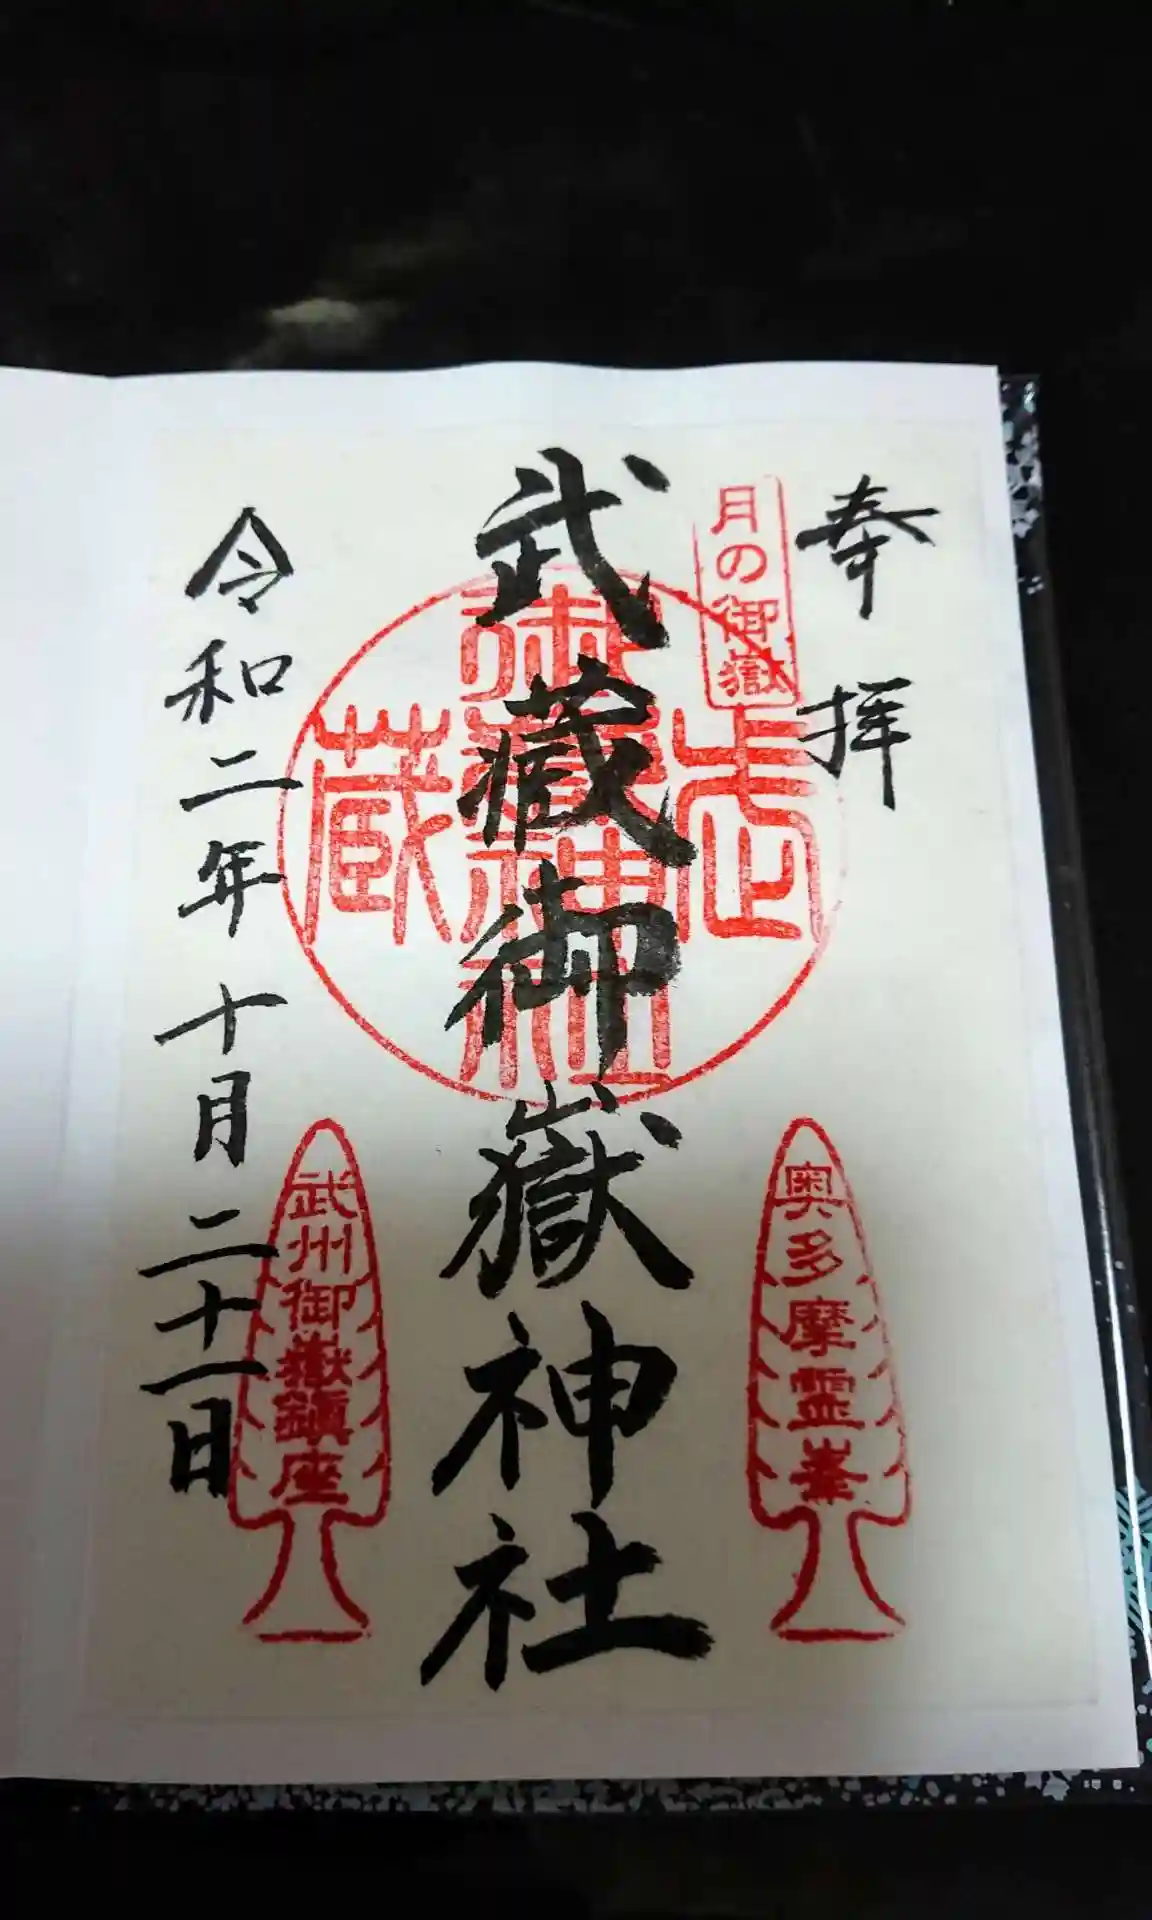 奉拝
月の御嶽
武蔵御嶽神社
武蔵
御嶽神社
奥多摩霊峯
武州御嶽鎮座
令和二年十月二十一日